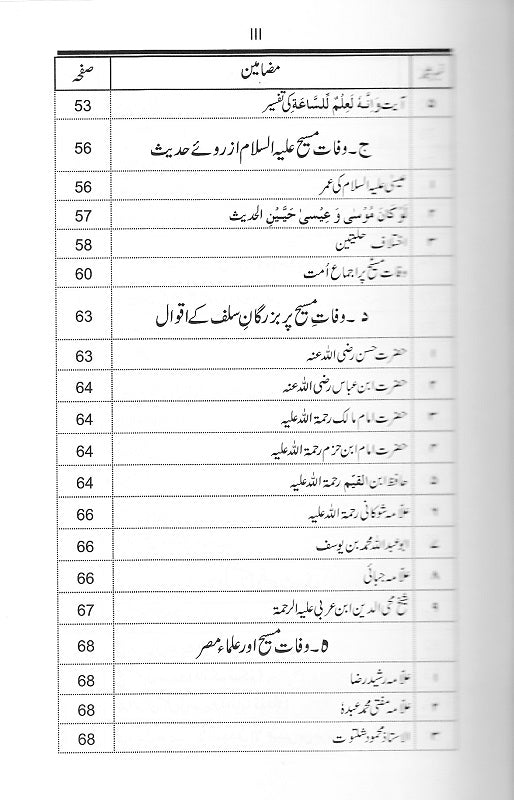 III
نمبر شمار مضامین صفحہ
۵ آیت وَاِنَّهٗ لَعِلْمٌ لِّلسَّاعَةِ کی تفسیر 53
ج۔ وفات مسیح علیہ السلام ازروئے حدیث 56
۱ عیسیٰ علیہ السلام کی عمر 56
۲ لَوْ كَانَ مُوْسٰى وَ عِيْسٰى حَيَّيْنِ الحدیث 57
۳ اختلاف حلیتین 58
وفات مسیح پر اجماع امت 60
د۔ وفاتِ مسیح پر بزرگان سلف کے اقوال 63
۱ حضرت حسن رضی اللہ عنہ 63
۲ حضرت ابن عباس رضی اللہ عنہ 64
۳ حضرت امام مالک رحمۃ اللہ علیہ 64
۴ حضرت امام ابن حزم رحمۃ اللہ علیہ 64
۵ حافظ ابن القیّم رحمۃ اللہ علیہ 64
۶ علامہ شوکانی رحمۃ اللہ علیہ 66
۷ ابو عبداللہ محمد بن یوسف 66
۸ علامہ جبائی 66
۹ شیخ محی الدین ابن عربی علیہ الرحمۃ 67
ہ۔ وفات مسیح اور علماء مصر 68
۱ علّامہ رشید رضا 68
۲ علّامہ مفتی محمد عبدہٗ 68
۳ الاستاذ محمود شلتوت 68